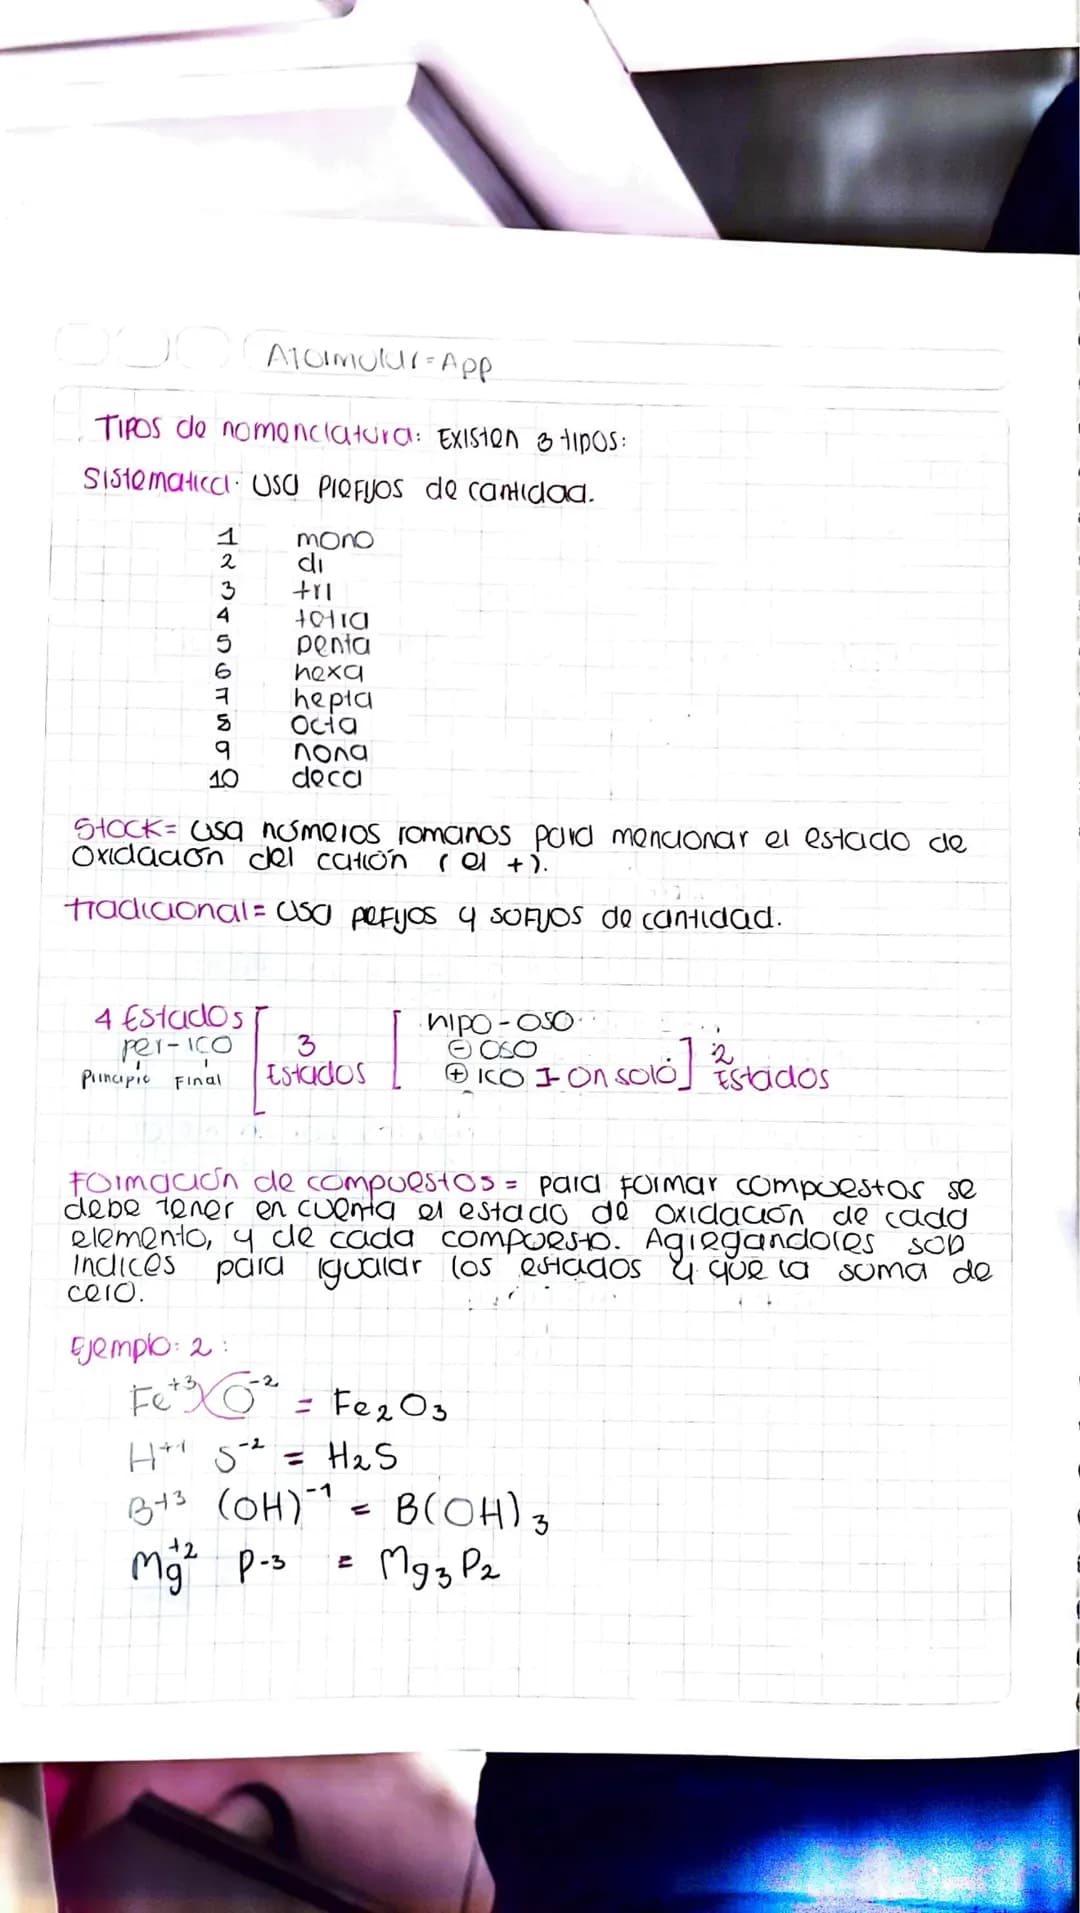 Tipos de nomenclatura: Existen 3 tipos:
Sistematica: usa prefijos de cantidad.
1 mono
2 di
3 tri
4 tetra
5 penta
6 hexa
7 hepta
8 octa
9 nona
10 deca
Stock= usa números romanos para mencionar el estado de
oxidación del catión (el +).
tradicional= usa pefijos y sofijos de cantidad.
4 Estados
per-ico
Principio Final
3
Estados
hipo-oso
⊖ oso
⊕ ico I-on solo
2
Estados
Formación de compuestos = para formar compuestos se
debe tener en cuenta el estado de oxidación de cada
elemento, y de cada compuesto. Agregandoles sub
indices para igualar los estados y que la suma de
cero.
Ejemplo: 2:
Fe⁺³ O⁻² = Fe₂O₃
H⁺¹ S⁻² = H₂S
B⁺³ (OH)⁻¹ = B(OH)₃
Mg⁺² P-3 = Mg₃P₂